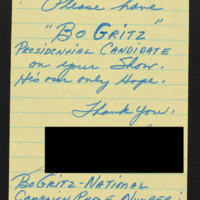 Please have
"Bo Gritz"
Presidential Candidate
on your Show.
He's our only Hope.
Thank you.
Bo Gritz - National
Campaign Phone Number: